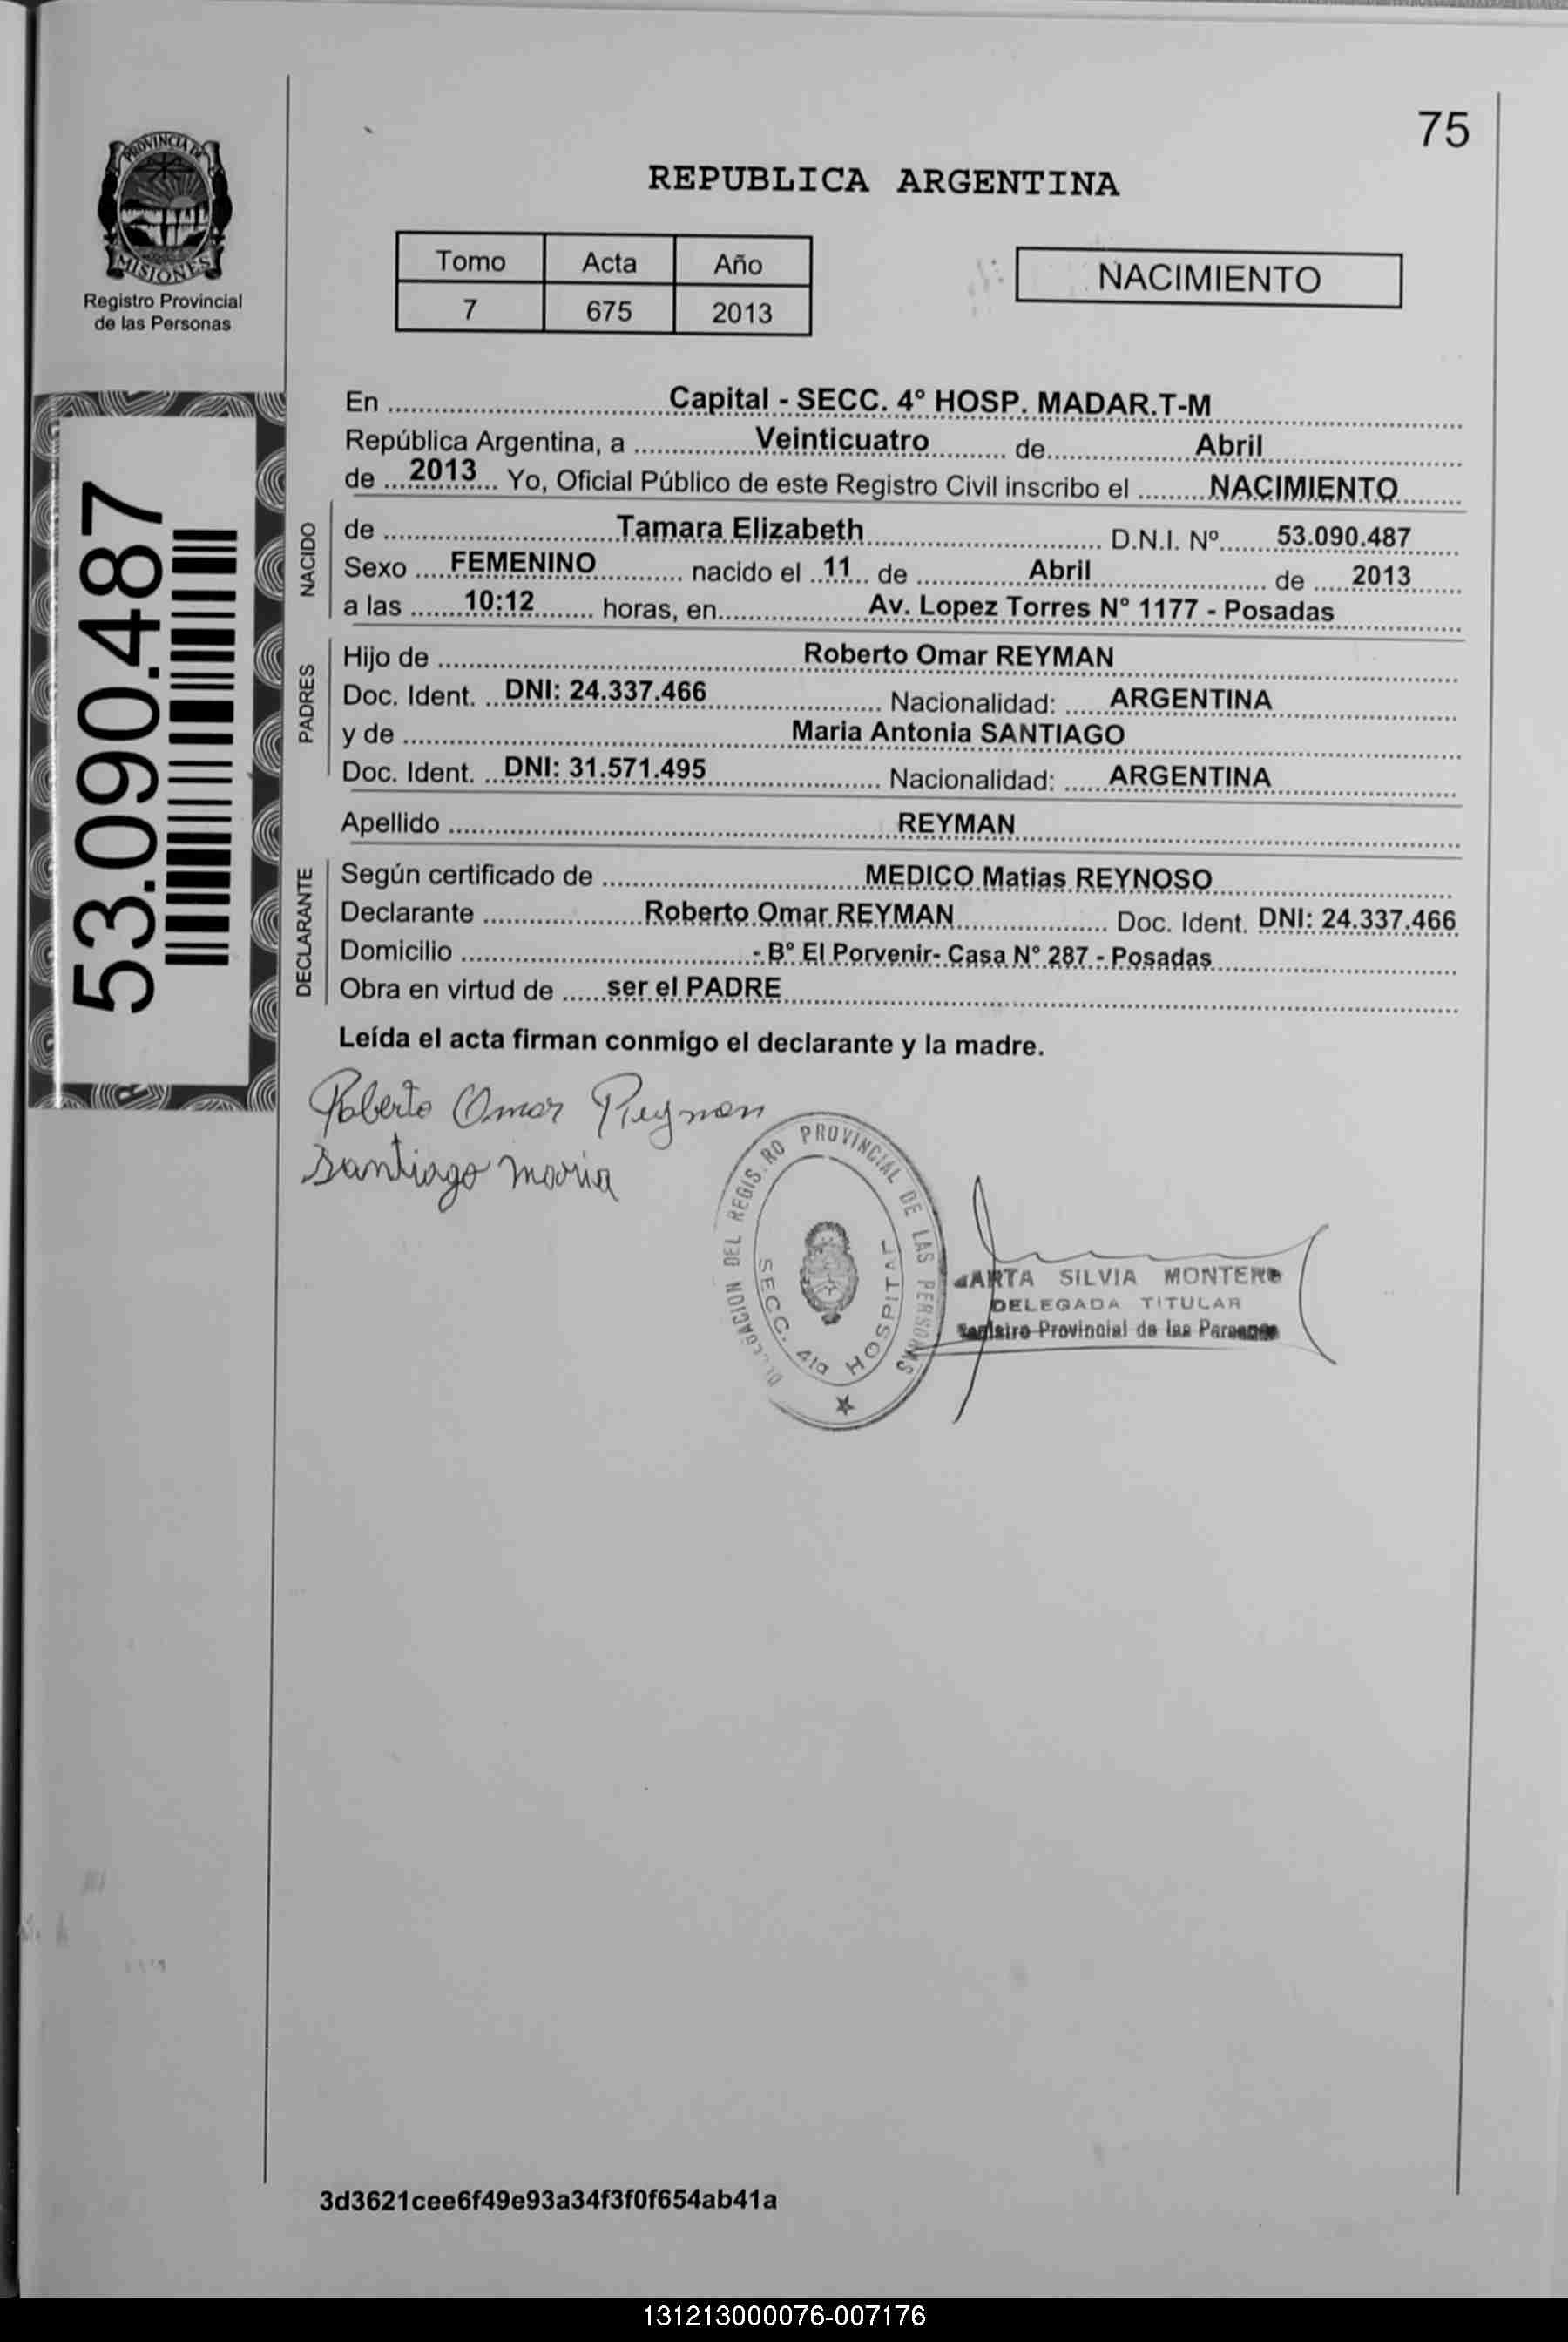 75
PROVINCIA DE
MISIONES
Registro Provincial
de las Personas
REPUBLICA ARGENTINA
Tomo Acta Año
7 675 2013
NACIMIENTO
53.090.487
En Capital - SECC. 4° HOSP. MADAR.T-M
República Argentina, a Veinticuatro de Abril
de 2013 Yo, Oficial Público de este Registro Civil inscribo el NACIMIENTO
NACIDO
de Tamara Elizabeth D.N.I. Nº 53.090.487
Sexo FEMENINO nacido el 11 de Abril de 2013
a las 10:12 horas, en Av. Lopez Torres N° 1177 - Posadas
PADRES
Hijo de Roberto Omar REYMAN
Doc. Ident. DNI: 24.337.466 Nacionalidad: ARGENTINA
y de Maria Antonia SANTIAGO
Doc. Ident. DNI: 31.571.495 Nacionalidad: ARGENTINA
Apellido REYMAN
DECLARANTE
Según certificado de MEDICO Matias REYNOSO
Declarante Roberto Omar REYMAN Doc. Ident. DNI: 24.337.466
Domicilio - B° El Porvenir- Casa N° 287 - Posadas
Obra en virtud de ser el PADRE
Leída el acta firman conmigo el declarante y la madre.
Roberto Omar Reyman
Santiago Maria
DEL REGISTRO PROVINCIAL DE LAS PERSONAS
SECC. 4ta HOSPITAL
SILVIA MONTERO
DELEGADA TITULAR
Provincial de las Personas
3d3621cee6f49e93a34f3f0f654ab41a
131213000076-007176